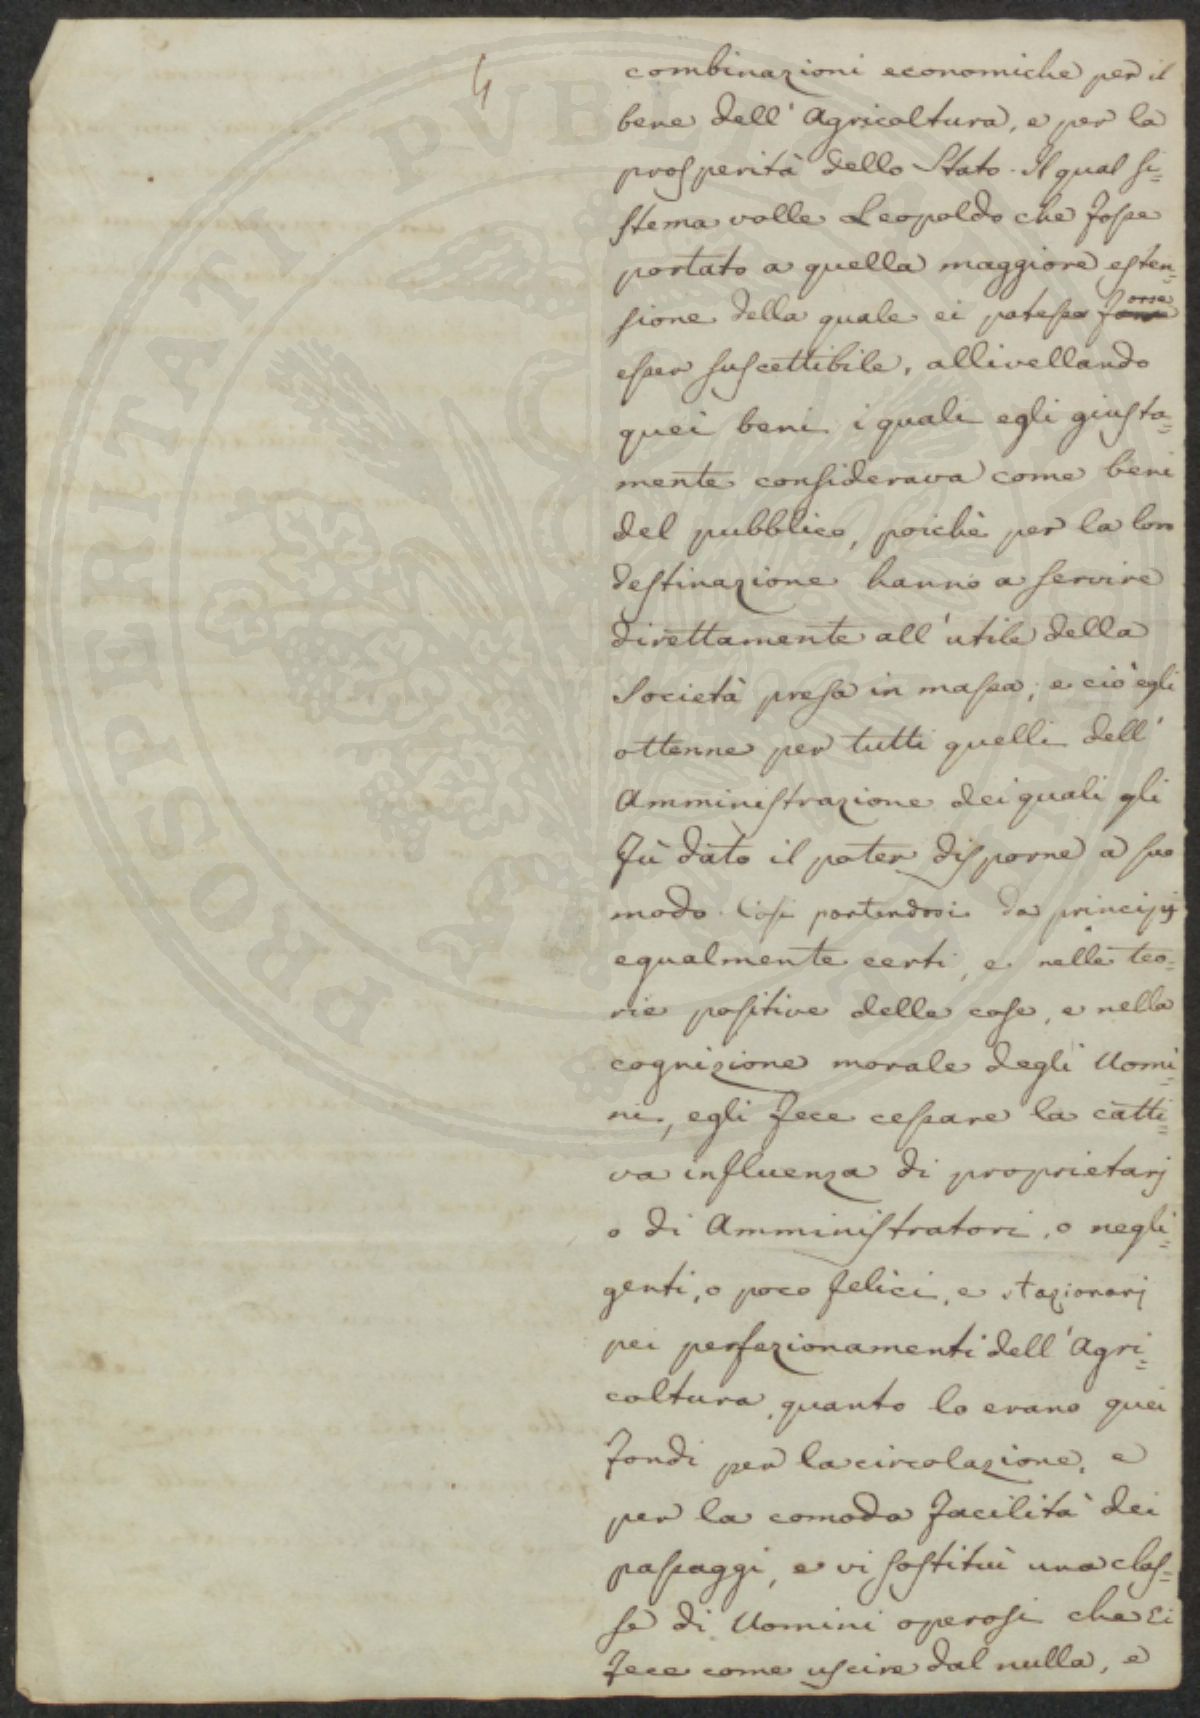 4
combinazioni economiche per il
bene dell' Agricoltura, e per la
prosperità dello Stato. Il qual si=
stema volle Leopoldo che fosse
portato a quella maggiore esten=
sione della quale ei potesse forse
esser suscettibile, allivellando
quei beni i quali egli giusta=
mente considerava come beni
del pubblico, poichè per la loro
destinazione hanno a servire
direttamente all' utile della
Società presa in massa; e ciò egli
ottenne per tutti quelli dell'
Amministrazione dei quali gli
fù dato il poter disporne a suo
modo. Così partendosi da principij
egualmente certi, e nelle teo=
rie positive delle cose, e nella
cognizione morale degli Uomi=
ni, egli fece cessare la catti=
va influenza di proprietarj
o di Amministratori, o negli=
genti, o poco felici, e stazionarj
pei perfezionamenti dell' Agri=
coltura, quanto lo erano quei
fondi per la circolazione, e
per la comoda facilità dei
passaggi, e vi sostituì una clas=
se di Uomini operosi che Ei
fece come uscire dal nulla, e
PROSPERITATI PUBLICAE